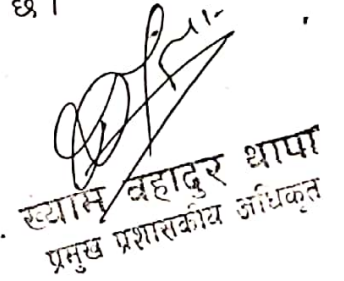 छ ।
ख्याम बहादुर थापा
प्रमुख प्रशासकीय अधिकृत